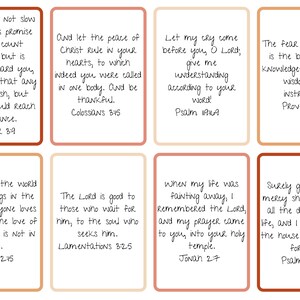 not slow
s promise
count
but is
ard you,
that any
sh, but
ould reach
ance.
3:9
And let the peace of
Christ rule in your
hearts, to which
indeed you were called
in one body. And be
thankful.
Colossians 3:15
Let my cry come
before you, O Lord;
give me
understanding
according to your
word!
Psalm 119:169
The fear
is the b
knowledge
wisdo
instr
Prov
the world
gs in the
yone loves
he love of
is not in
2:15
The Lord is good to
those who wait for
him, to the soul who
seeks him.
Lamentations 3:25
When my life was
fainting away, I
remembered the Lord,
and my prayer came
to you, into your holy
temple.
Jonah 2:7
Surely g
mercy sh
all the d
life, and I
the house
for
Psalm